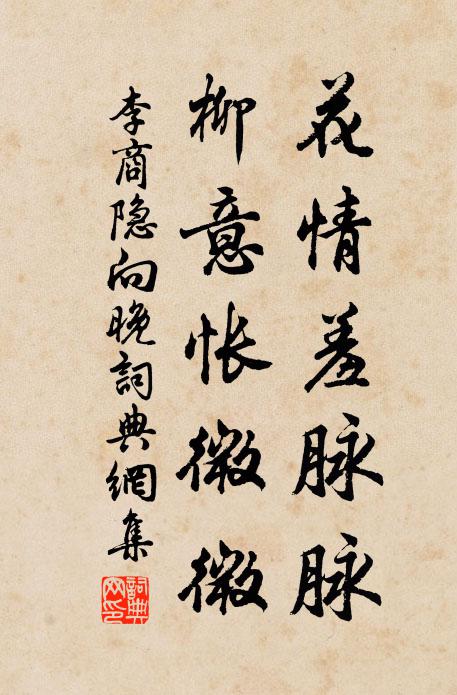 花情羞脉脉
柳意怅微微
李商隐向晚詞典網集
詞典网印